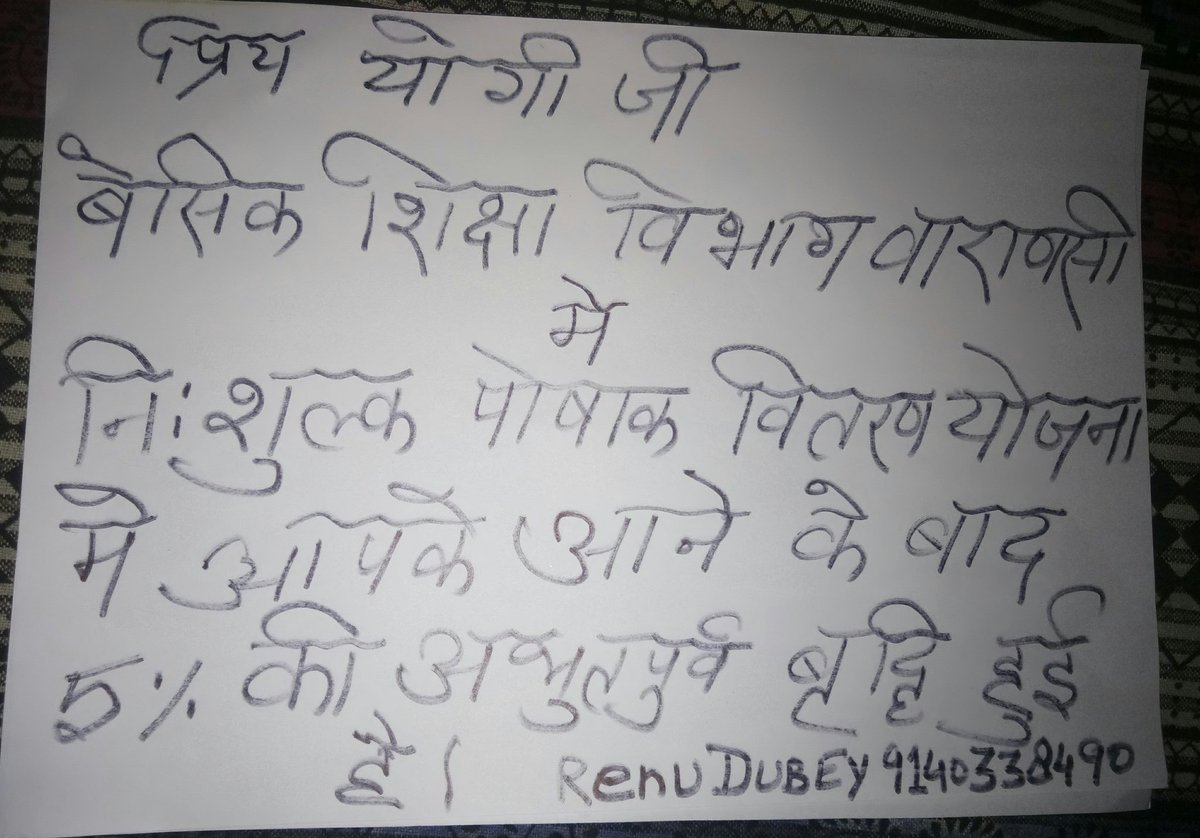 प्रिय योगी जी
बेसिक शिक्षा विभाग वाराणसी
मे
निःशुल्क पोषाक वितरण योजना
मे आपके आने के बाद
5% की अभुतपुर्व बृद्धि हुई
है। Renu DUBEY 9140338490